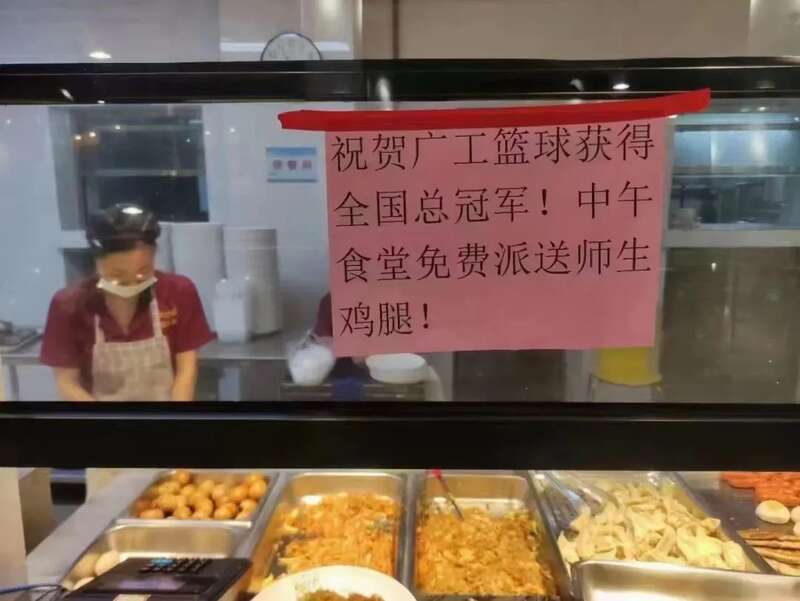 祝贺广工篮球获得
全国总冠军！中午
食堂免费派送师生
鸡腿！